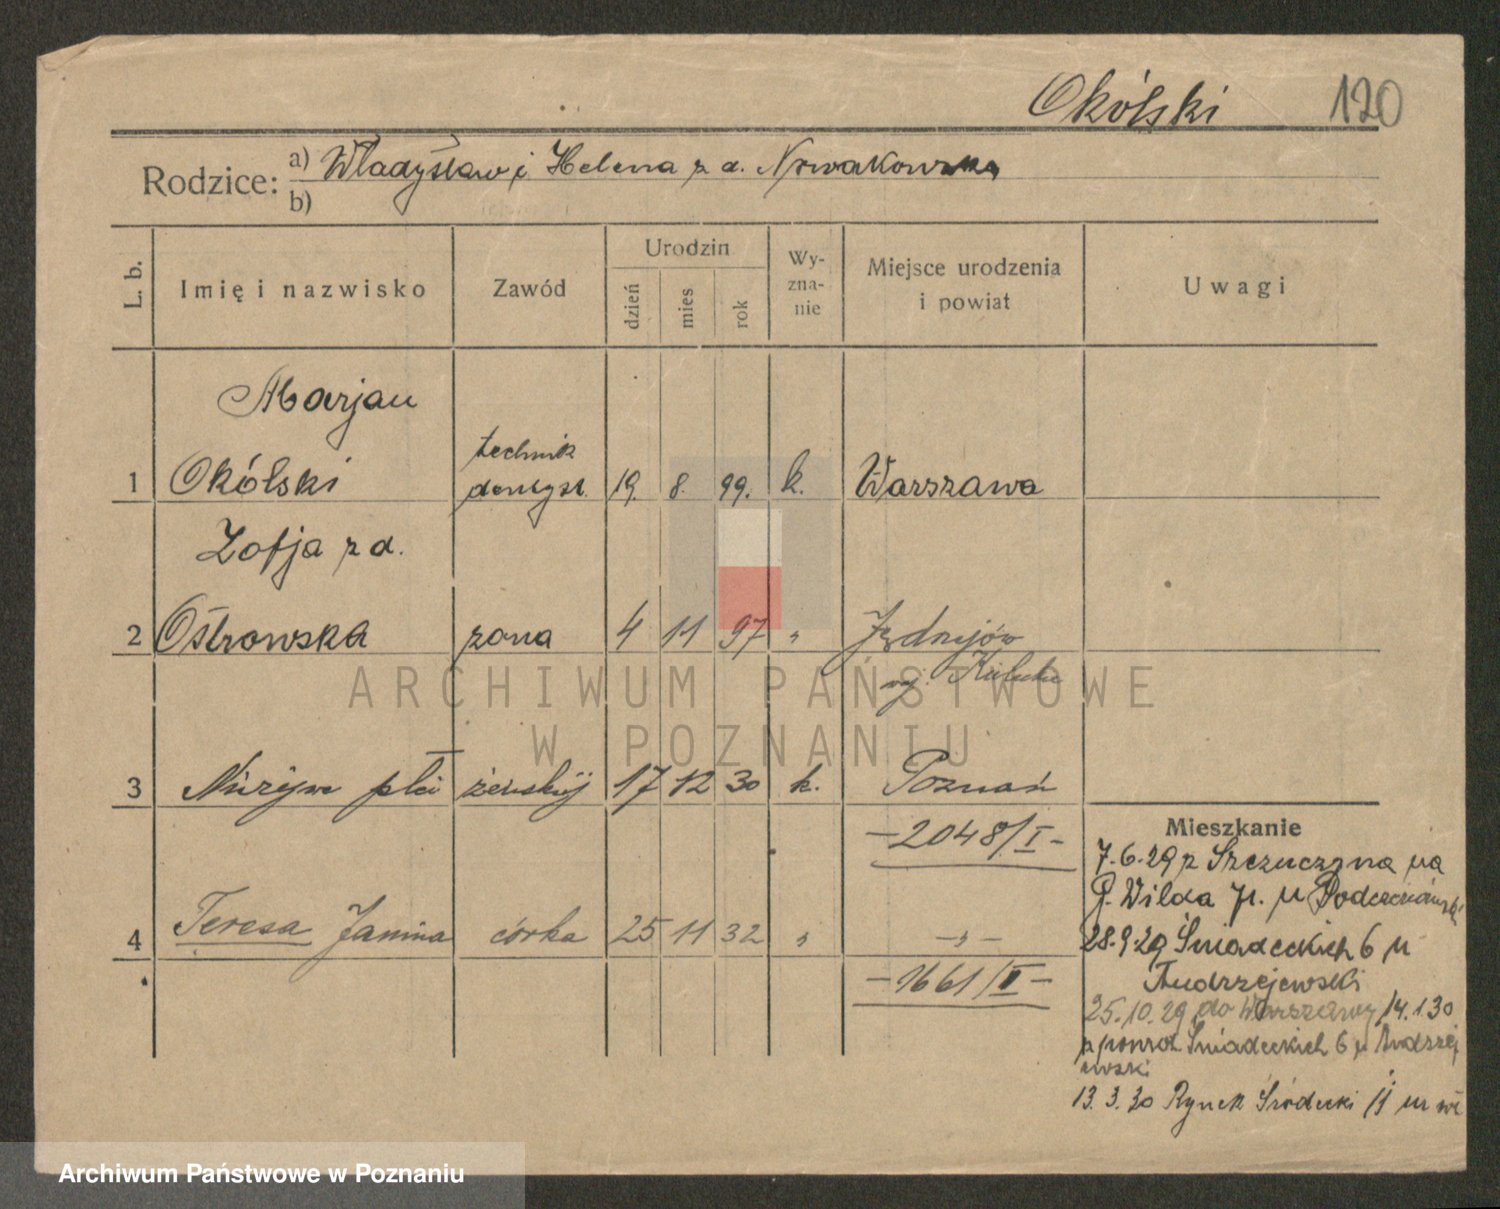 Okólski 120
Rodzice: a) Władysław i Helena z d. Nowakowska
b)
L. b. Imię i nazwisko Zawód Urodzin dzień mies rok Wy-zna-nie Miejsce urodzenia i powiat Uwagi
Marjan
technik
1 Okólski dentyst. 19. 8. 99. k. Warszawa
Zofja z d.
2 Ostrowska żona 4 11 97 " Jędrzejów
3 Nieżywe płci żeńskiej 17 12 30 k. Poznań
Mieszkanie
—2048/I—
7.6.29 z Szczuczyna na
G. Wilda 71. u
4 Teresa Janina córka 25 11 32 " —"—
28.9.29 Śniadeckich 6 u
Andrzejewski
—1661/II—
25.10.29 do Warszawy 14.1.30
z powrot Śniadeckich 6 u Andrzej
ewski
13.3.30 Rynek Śródecki 11
ARCHIWUM PAŃSTWOWE
W POZNANIU
Archiwum Państwowe w Poznaniu